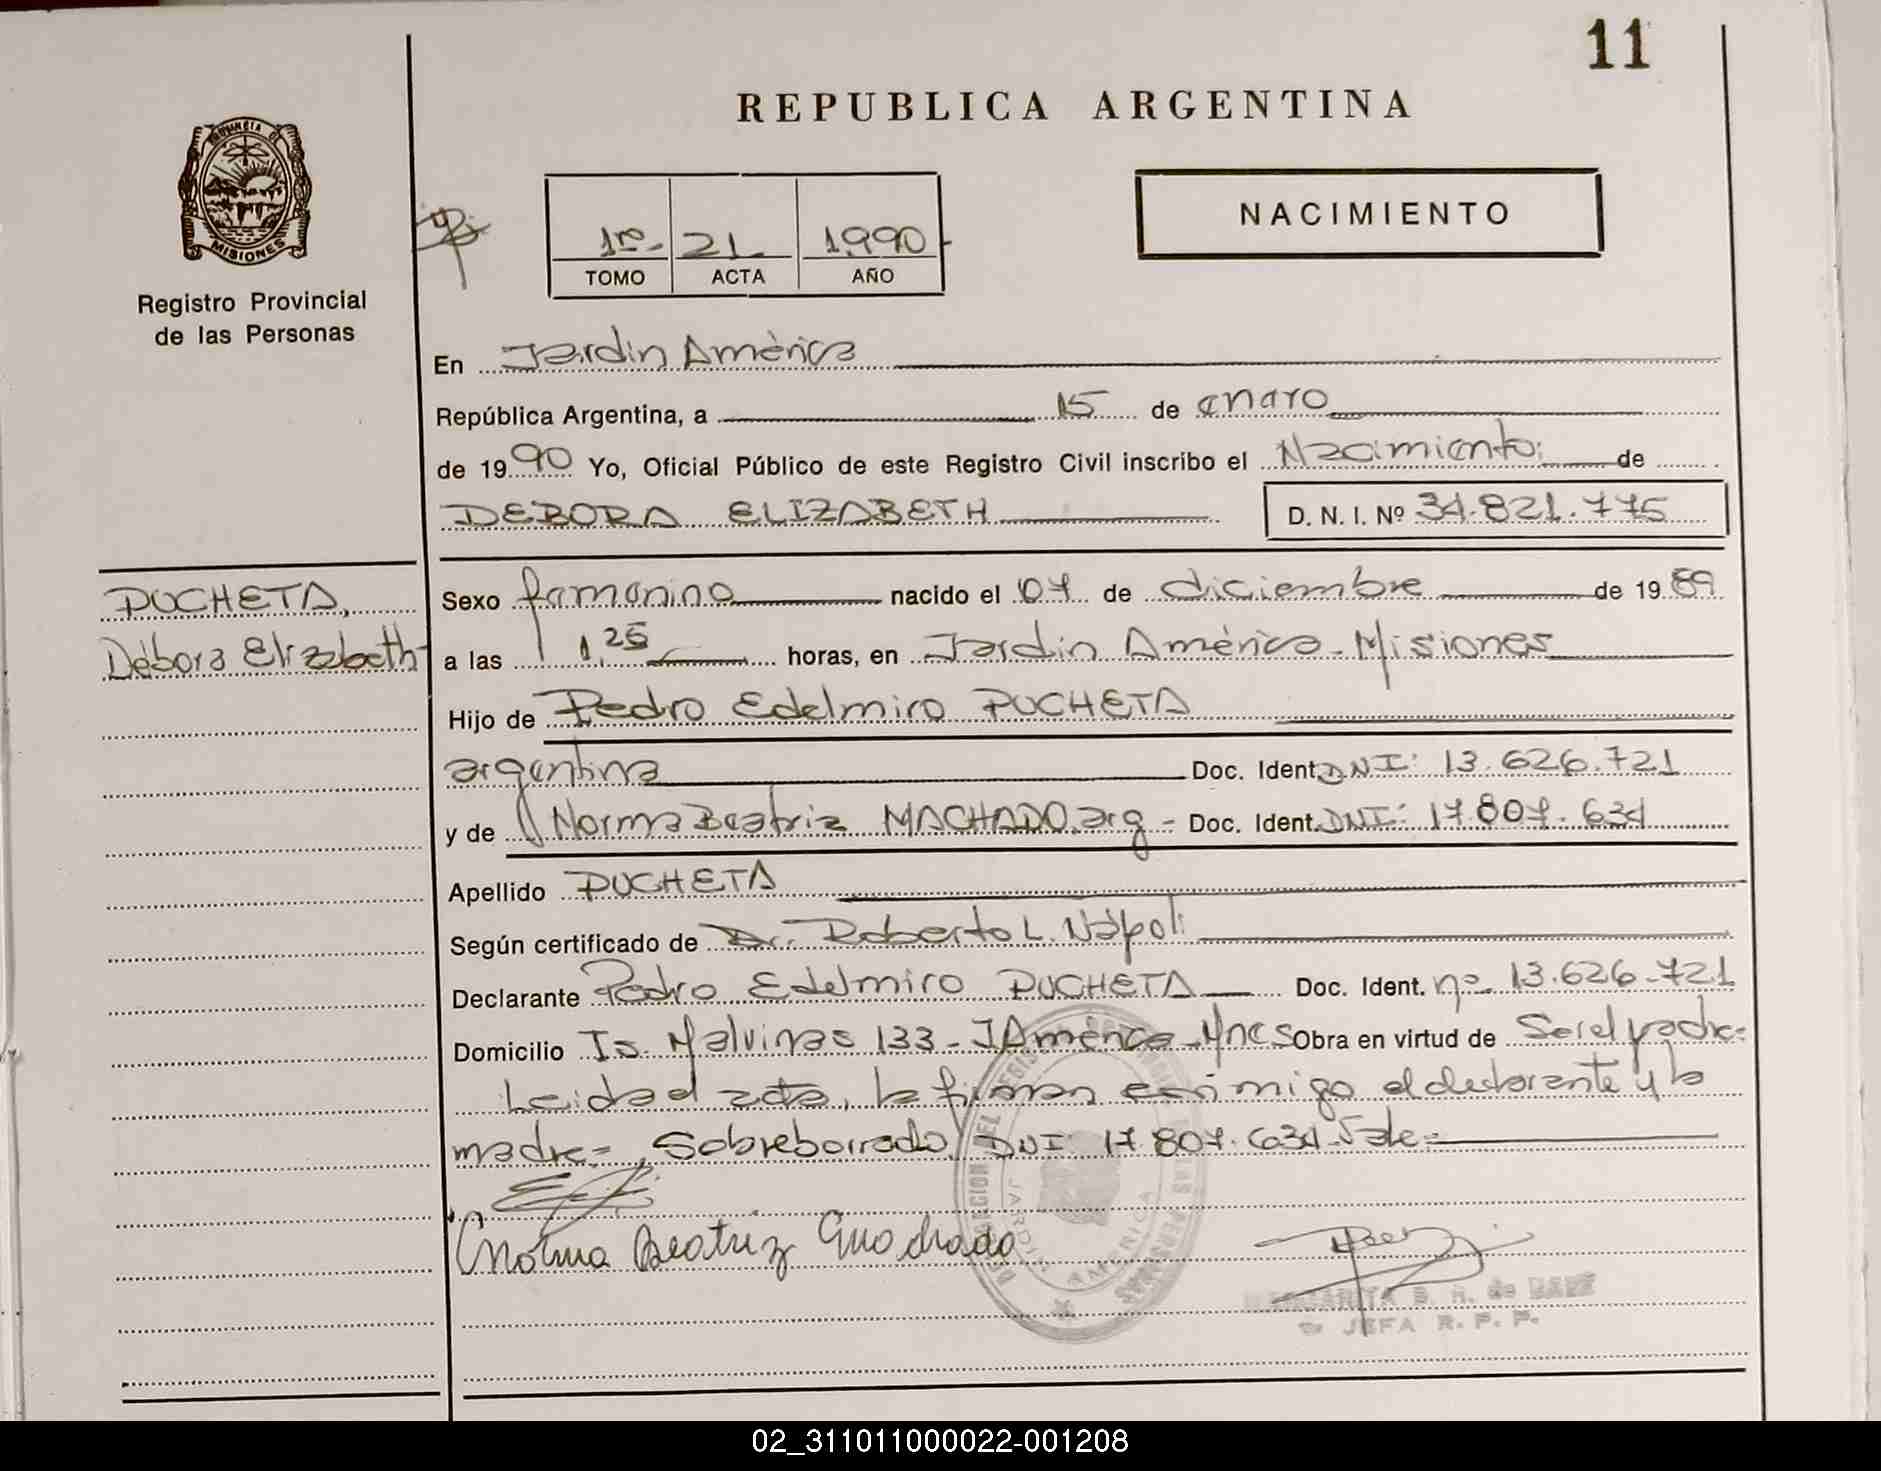 11
REPUBLICA ARGENTINA
PROVINCIA DE
MISIONES
Registro Provincial
de las Personas
1º- 21 1990
TOMO ACTA AÑO
NACIMIENTO
En Jardin América
República Argentina, a 15 de enero
de 1990 Yo, Oficial Público de este Registro Civil inscribo el Nacimiento: de
DEBORA ELIZABETH D. N. I. Nº 34.821.775
PUCHETA,
Débora Elizabeth
Sexo femenino nacido el 07 de diciembre de 1989
a las 1,25 horas, en Jardin América - Misiones
Hijo de Pedro Edelmiro PUCHETA
argentina Doc. Ident. DNI: 13.626.721
y de Norma Beatriz MACHADO, arg - Doc. Ident. DNI: 17.807.634
Apellido PUCHETA
Según certificado de Dr. Roberto L. Nápoli
Declarante Pedro Edelmiro PUCHETA Doc. Ident. nº 13.626.721
Domicilio Is. Malvinas 133 - J América - Mnes Obra en virtud de Ser el padre=
Leida el acta, la firman conmigo el declarante y la
madre= Sobreborrado/ DNI: 17.807.634 Vale=
Norma Beatriz
JARDIN AMERICA
MARGARITA B. H. de
JEFA R. P. P.
02_311011000022-001208